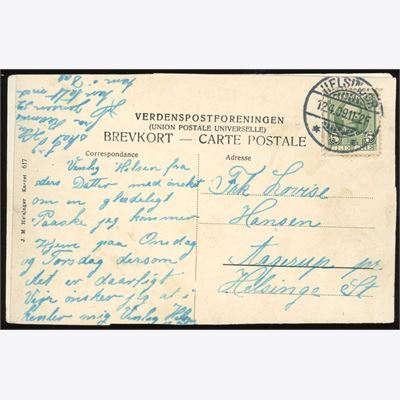 VERDENSPOSTFORENINGEN
(UNION POSTALE UNIVERSELLE)
BREVKORT — CARTE POSTALE
Correspondance
Adresse
Venlig Hilsen fra
eders Datter med ønsket
om en glædeligt
Paaske jeg kommer
Hjem paa Onsdag
og Torsdag dersom
det er daarligt
Vejr ønsker jeg at i
henter mig Venlig Hilsen
Frk Lovise
Hansen
Aagerup pr.
Helsinge St
HELSINGØR
12.4.09
5
J. M. Kunret 617